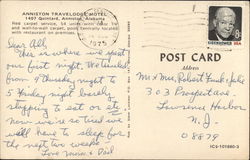 ANNISTON TRAVELODGE MOTEL
1407 Quintard, Anniston, Alabama
Red carpet service, 54 units with
and wall-to-wall carpet, pool, centrally located
with restaurant on premises.
1975
Dear All,
This is where we spent
our first night. We traveled
from 9 Thursday night to
5 Friday night barely
stopping to eat or etc
now we're so tired we
will have to sleep for
the next two weeks
Love
POST CARD
Address
EISENHOWER USA
Mr & Mrs Robert Funk & Julie
303 Prospect Ave.
Lawrence Harbor
N.J.
08879
4C-101880-3